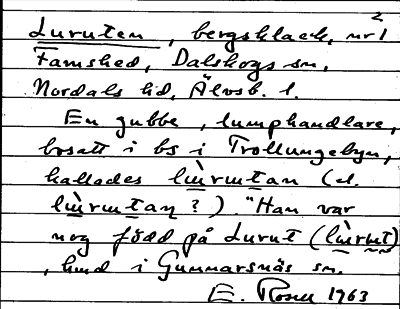 2
Luruten, bergsklack, nr 1
Famshed, Dalskogs sn,
Nordals hd, Älvsb. l.
En gubbe, lumphandlare,
bosatt i bs i Trollungebyn,
kallades lùrutan (el.
lùrutan?). "Han var
nog född på Lurut (lùrut)
, hmd i Gunnarsnäs sn.
E. Rosell 1963